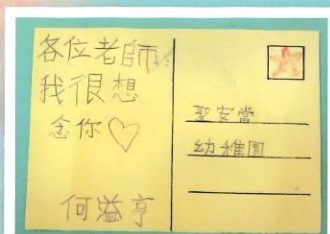 各位老師
我很想
念你♡
何溢亨
聖安當
幼稚園